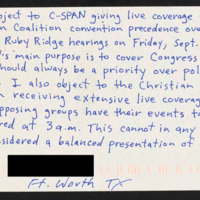 bject to C-SPAN giving live coverage
n Coalition convention precedence ove
Ruby Ridge hearings on Friday, Sept.
's main purpose is to cover Congress
hould always be a priority over pol
. I also object to the Christian
n receiving extensive live covera
pposing groups have their events t
red at 3 a.m. This cannot in any
nsidered a balanced presentation of
Ft. Worth TX